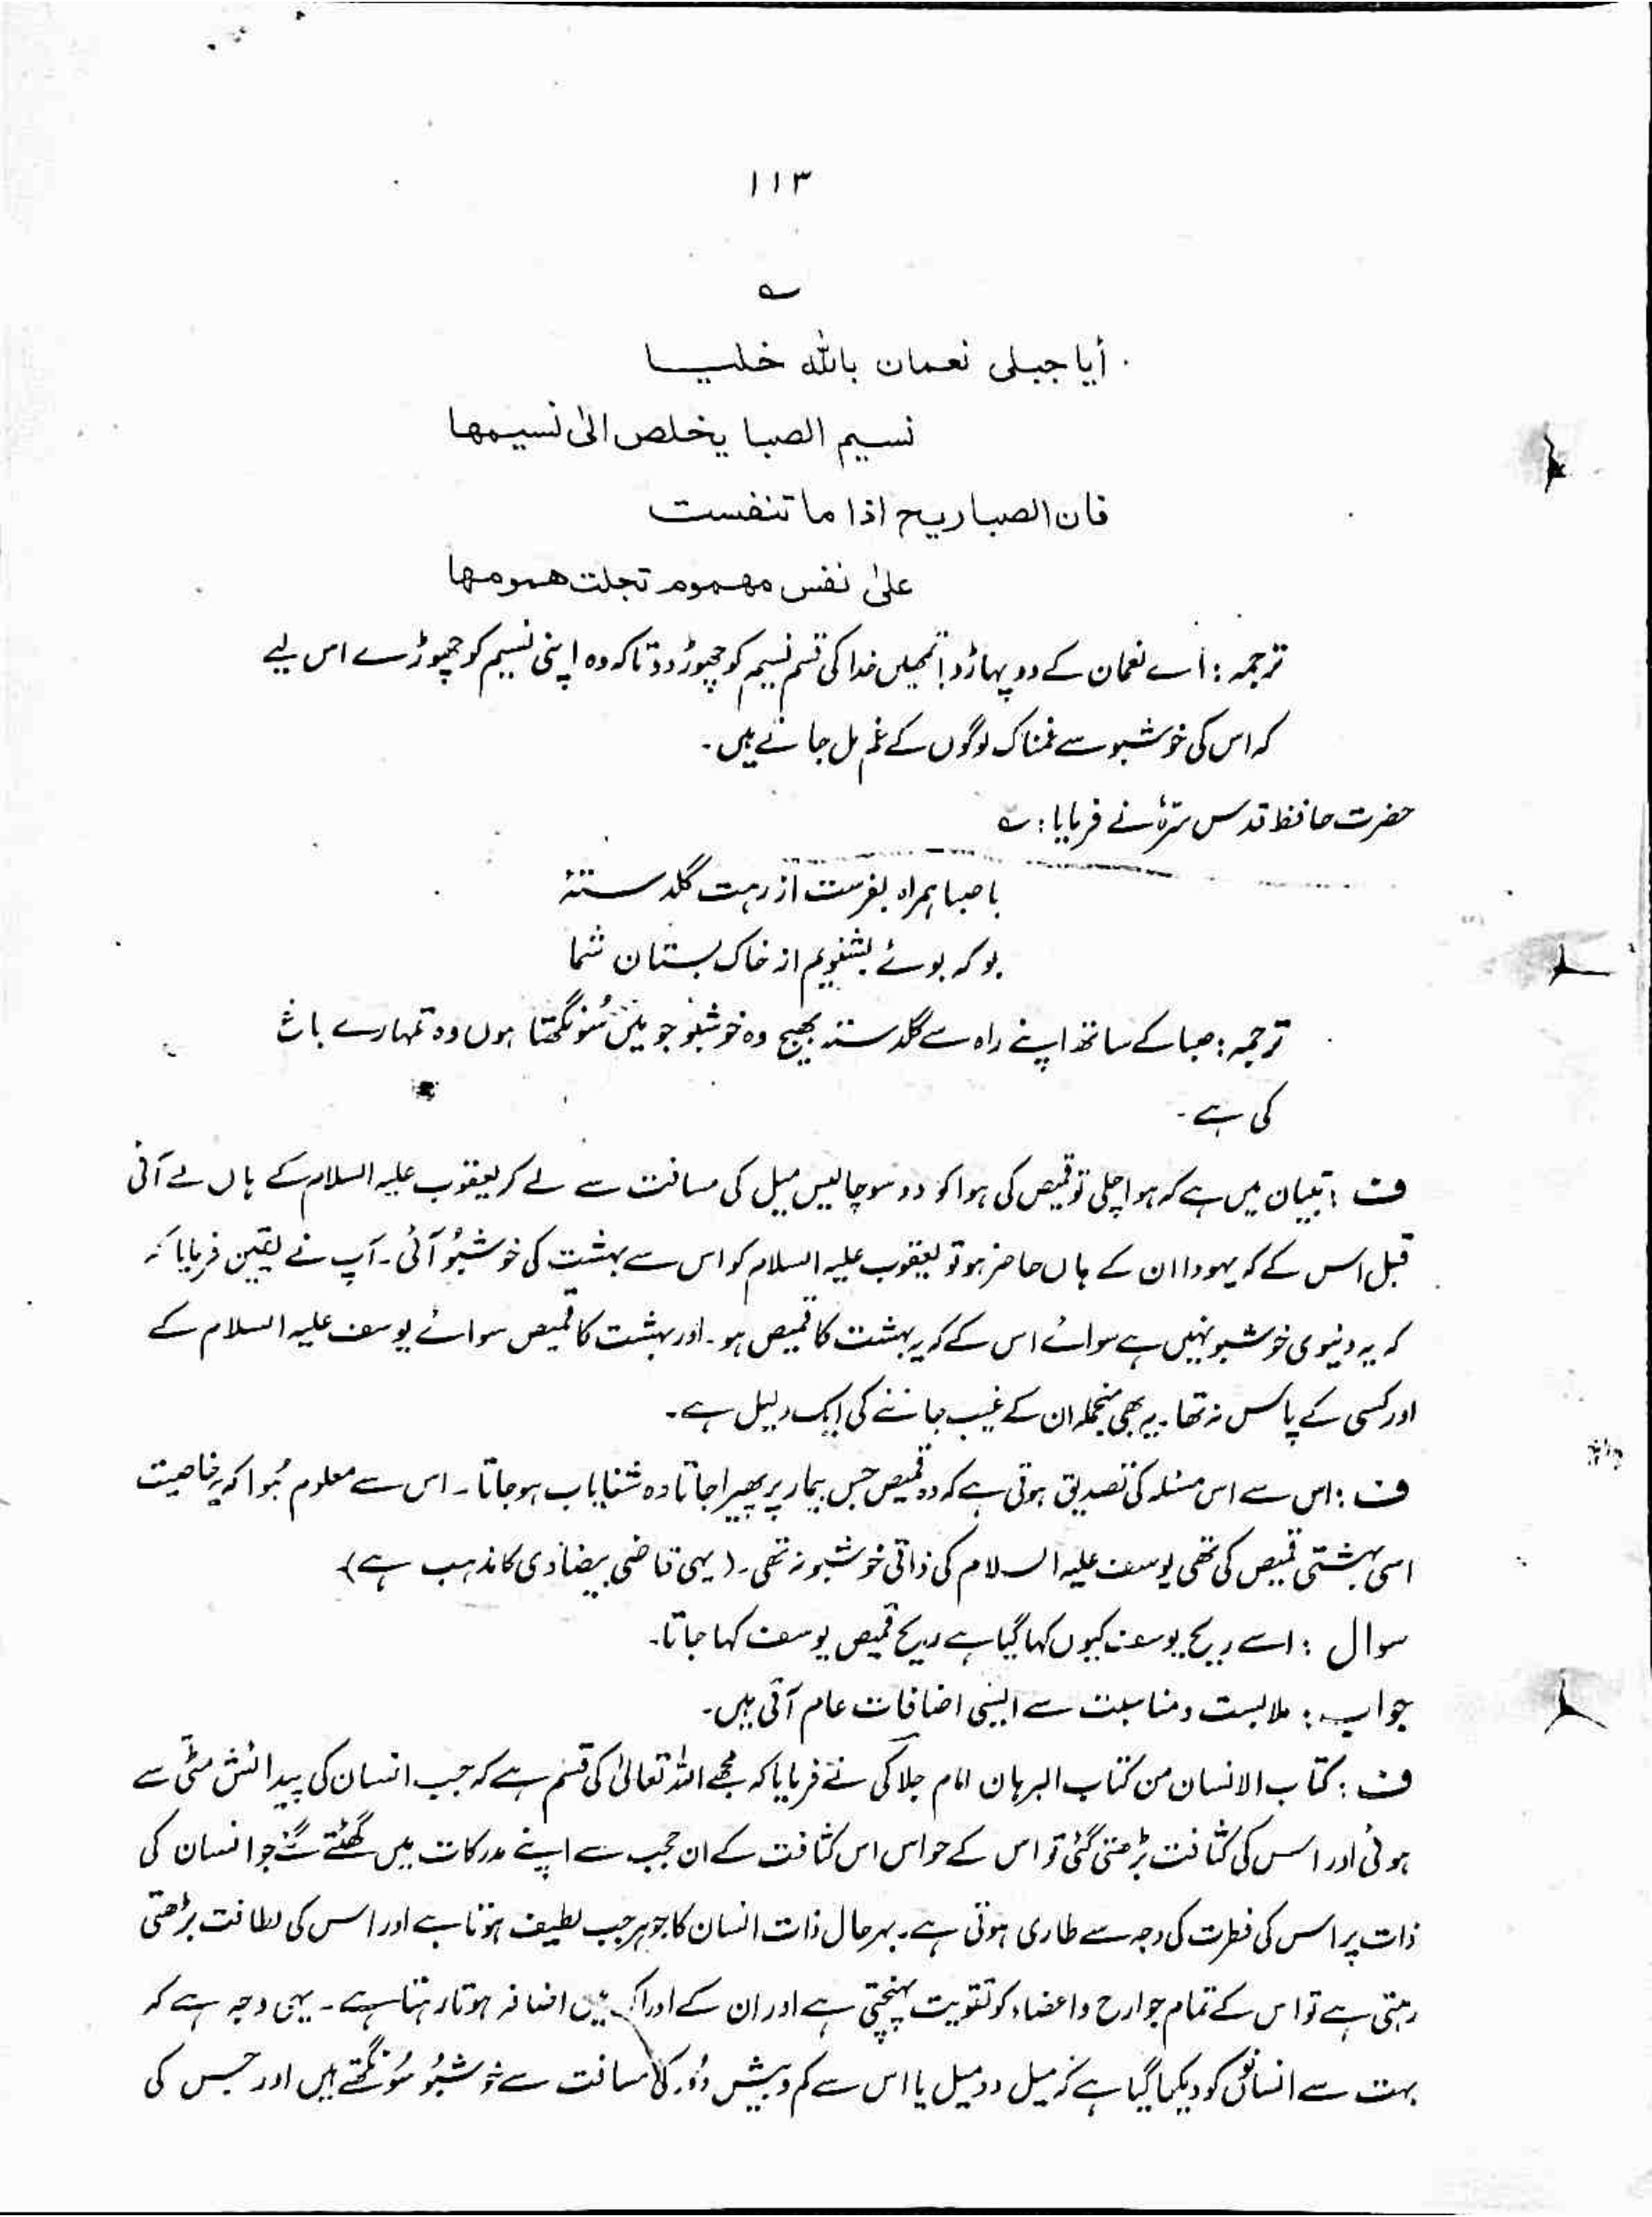 ۱۱۳
؎
أیا جبلی نعمان باللہ خلیا
نسیم الصبا یخلص الیٰ نسیمها
فان الصبا ریح اذا ما تنفست
علیٰ نفس مهموم تجلت همومها
ترجمہ : اے نعمان کے دو پہاڑو! تمھیں خدا کی قسم نسیم کو چھوڑ دو تاکہ وہ اپنی نسیم کو چھوڑے اس لیے
کہ اس کی خوشبو سے غمناک لوگوں کے غم ٹل جاتے ہیں ۔
حضرت حافظ قدس سرّہٗ نے فرمایا : ؎
با صبا ہمراہ بفرست از رہت گلدستۂ
بو کہ بوئے بشنویم از خاک بستان شما
ترجمہ : صبا کے ساتھ اپنے راہ سے گلدستہ بھیج وہ خوشبو جو میں سُونگھتا ہوں وہ تمہارے باغ
کی ہے ۔
ف : تبیان میں ہے کہ ہوا چلی تو قمیص کی ہوا کو دو سو چالیس میل کی مسافت سے لے کر یعقوب علیہ السلام کے ہاں لے آئی
قبل اس کے کہ یہودا ان کے ہاں حاضر ہو تو یعقوب علیہ السلام کو اس سے بہشت کی خوشبُو آئی ۔ آپ نے یقین فرمایا کہ
کہ یہ دنیوی خوشبو نہیں ہے سوائے اس کے کہ یہ بہشت کا قمیص ہو ۔ اور بہشت کا قمیص سوائے یوسف علیہ السلام کے
اور کسی کے پاس نہ تھا ۔ یہ بھی منجملہ ان کے غیب جاننے کی ایک دلیل ہے ۔
ف : اس سے اس مسئلہ کی تصدیق ہوتی ہے کہ وہ قمیص جس بیمار پر پھیرا جاتا وہ شفایاب ہو جاتا ۔ اس سے معلوم ہُوا کہ یہ خاصیت
اسی بہشتی قمیص کی تھی یوسف علیہ السلام کی ذاتی خوشبو نہ تھی ۔ (یہی قاضی بیضاوی کا مذہب ہے)
سوال : اسے ریح یوسف کیوں کہا گیا ہے ریح قمیص یوسف کہا جاتا ۔
جواب : ملابست و مناسبت سے ایسی اضافات عام آتی ہیں ۔
ف : کتاب الانسان من کتاب البرہان امام جلاکی نے فرمایا کہ مجھے اللہ تعالیٰ کی قسم ہے کہ جب انسان کی پیدائش مٹی سے
ہوئی اور اس کی کثافت بڑھتی گئی تو اس کے حواس اس کثافت کے ان حجب سے اپنے مدرکات میں گھٹتے گئے جو انسان کی
ذات پر اس کی فطرت کی وجہ سے طاری ہوتی ہے ۔ بہرحال ذات انسان کا جوہر جب لطیف ہوتا ہے اور اس کی لطافت بڑھتی
رہتی ہے تو اس کے تمام جوارح و اعضاء کو تقویت پہنچتی ہے اور ان کے ادراک میں اضافہ ہوتا رہتا ہے ۔ یہی وجہ ہے کہ
بہت سے انسانوں کو دیکھا گیا ہے کہ میل دو میل یا اس سے کم و بیش دُور کی مسافت سے خوشبُو سُونگھتے ہیں اور جس کی